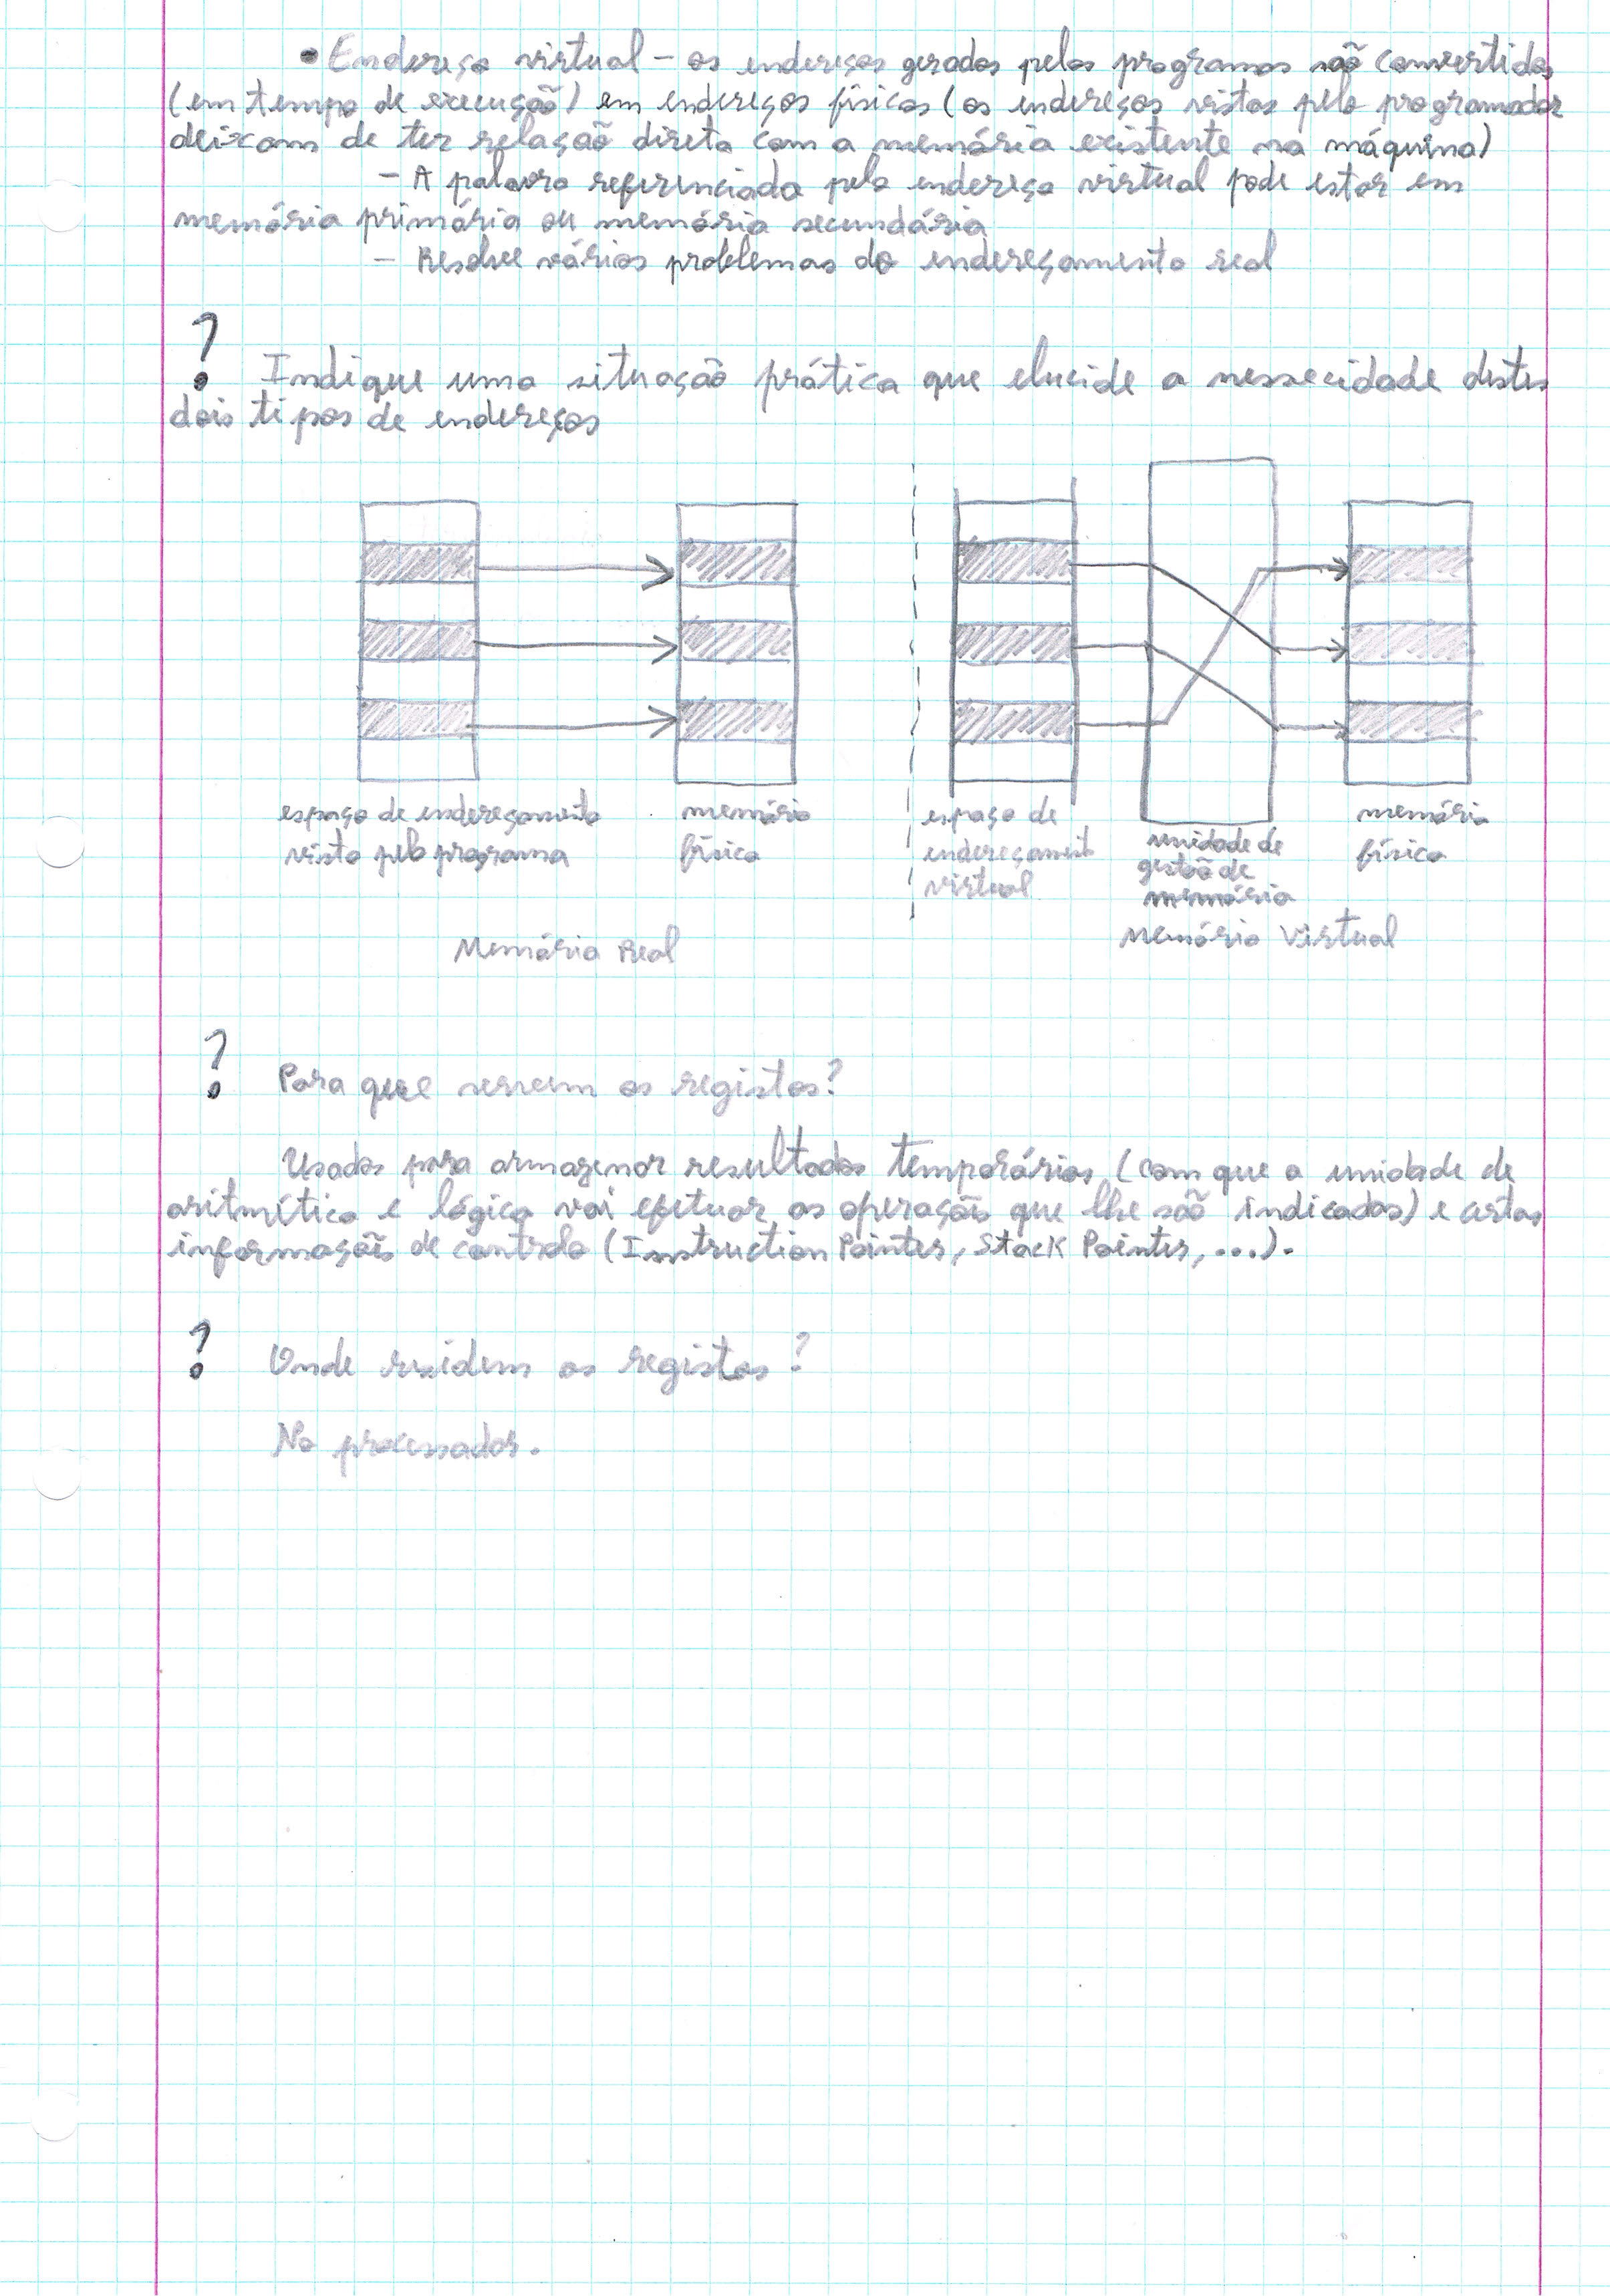 • Endereço virtual – os endereços gerados pelos programas são convertidos
(em tempo de execução) em endereços físicos (os endereços vistos pelo programador
deixam de ter relação direta com a memória existente na máquina)
– A palavra referenciada pelo endereço virtual pode estar em
memória primária ou memória secundária
– Resolve vários problemas do endereçamento real
? Indique uma situação prática que elucide a nessecidade destes
dois tipos de endereços
espaço de endereçamento
visto pelo programa
memória
física
Memória Real
espaço de
endereçament
virtual
unidade de
gestão de
memória
memória
física
Memória Virtual
? Para que servem os registos?
Usados para armazenar resultados temporários (com que a unidade de
aritmética e lógica vai efetuar as operações que lhe são indicadas) e certas
informações de controlo (Instruction Pointer, Stack Pointer, ...).
? Onde residem os registos?
No processador.